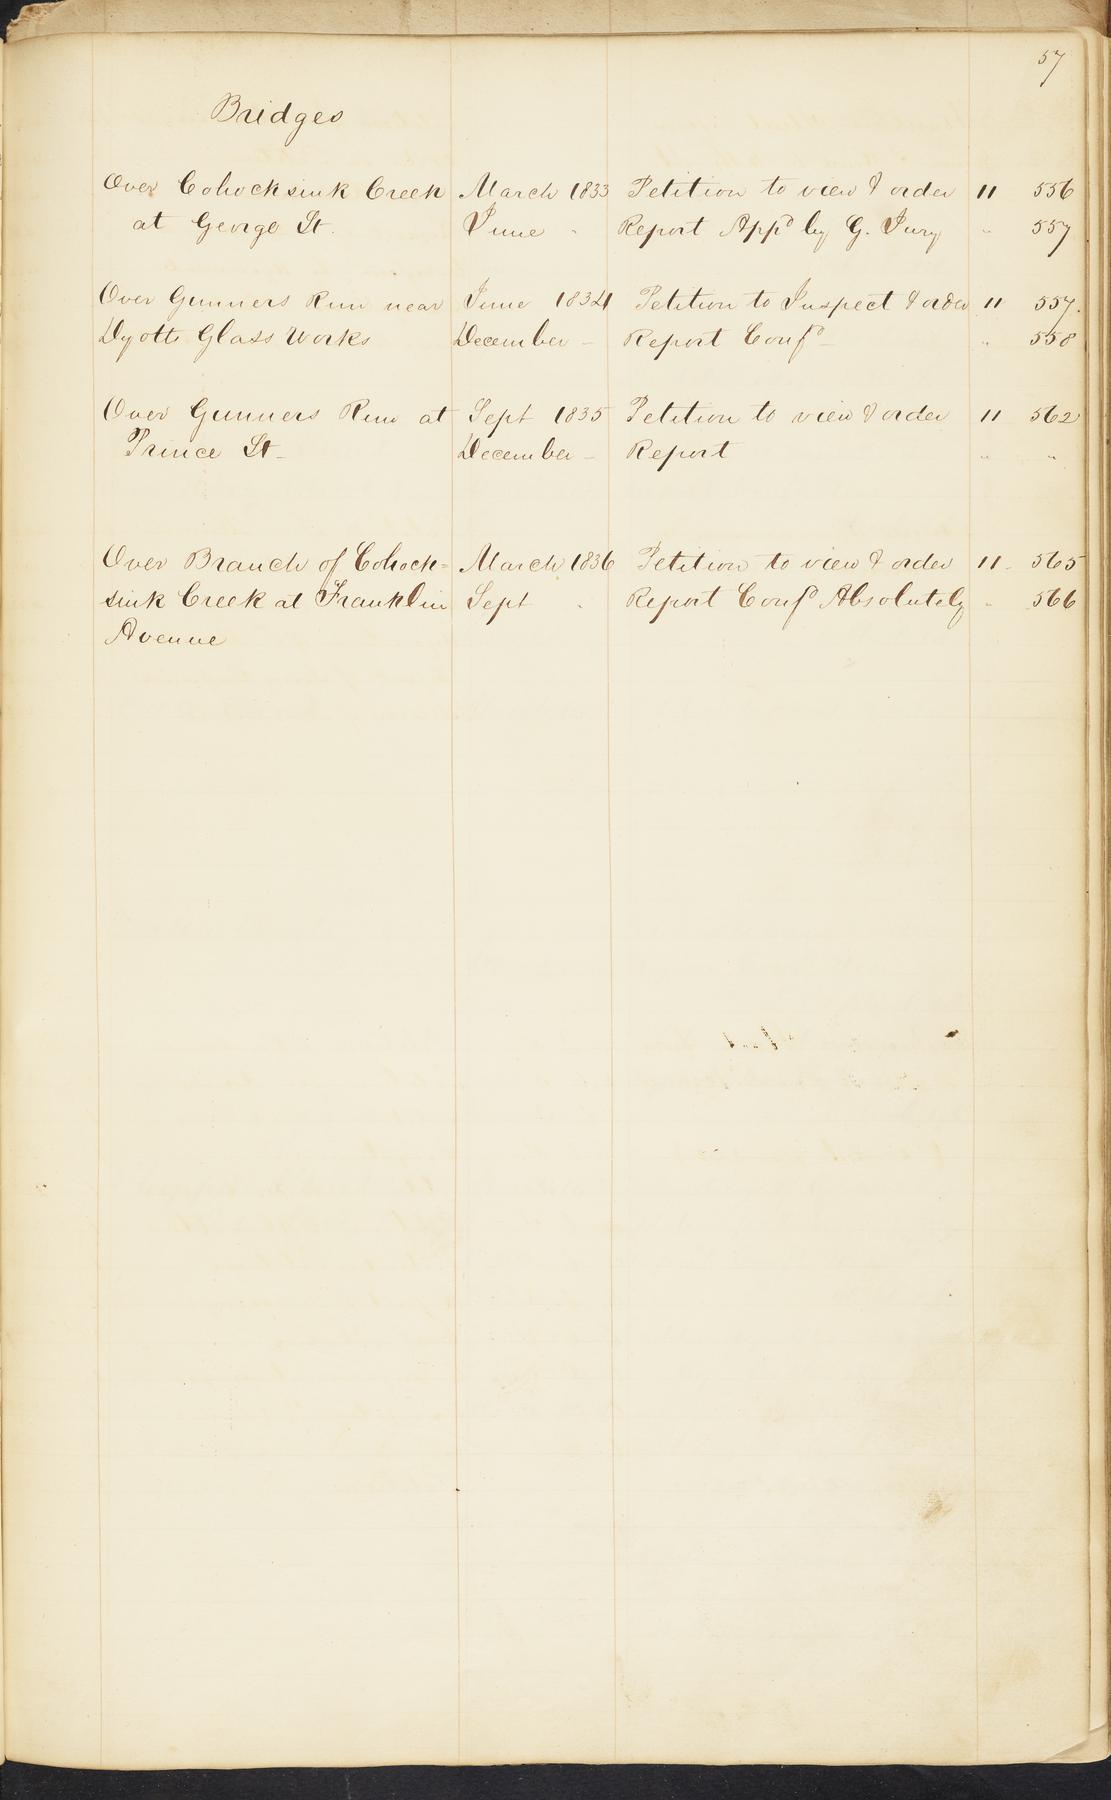 57
Bridges
Over Cohocksink Creek March 1833 Petition to view & order 11 556
at George St. June " Report Appd by G. Jury " 557
Over Gunners Run near June 1834 Petition to Inspect & order 11 557.
Dyotts Glass Works December - Report Confd - " 558
Over Gunners Run at Sept 1835 Petition to view & order 11 562
Prince St - December - Report " "
Over Branch of Cohock= March 1836 Petition to view & order 11 - 565
sink Creek at Franklin Sept " Report Confd Absolutely " 566
Avenue